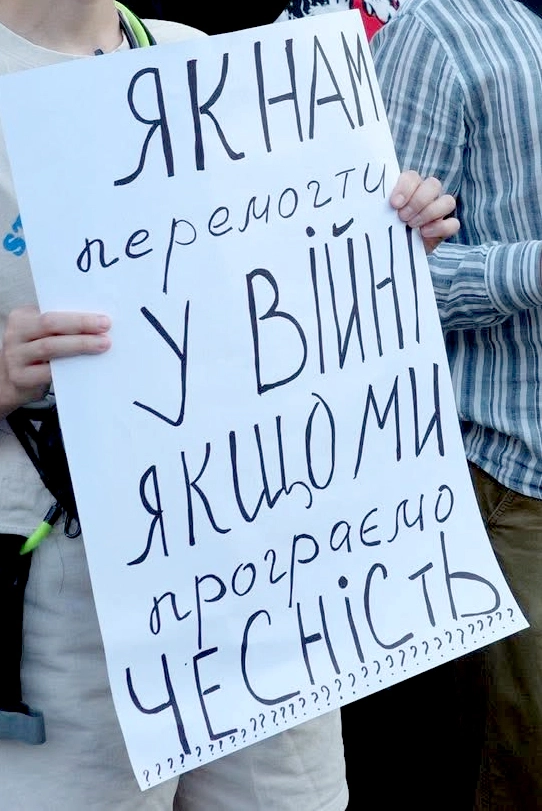 ЯК НАМ
перемогти
У ВІЙНІ
ЯКЩО МИ
програємо
ЧЕСНІСТЬ
???????????????????????????????